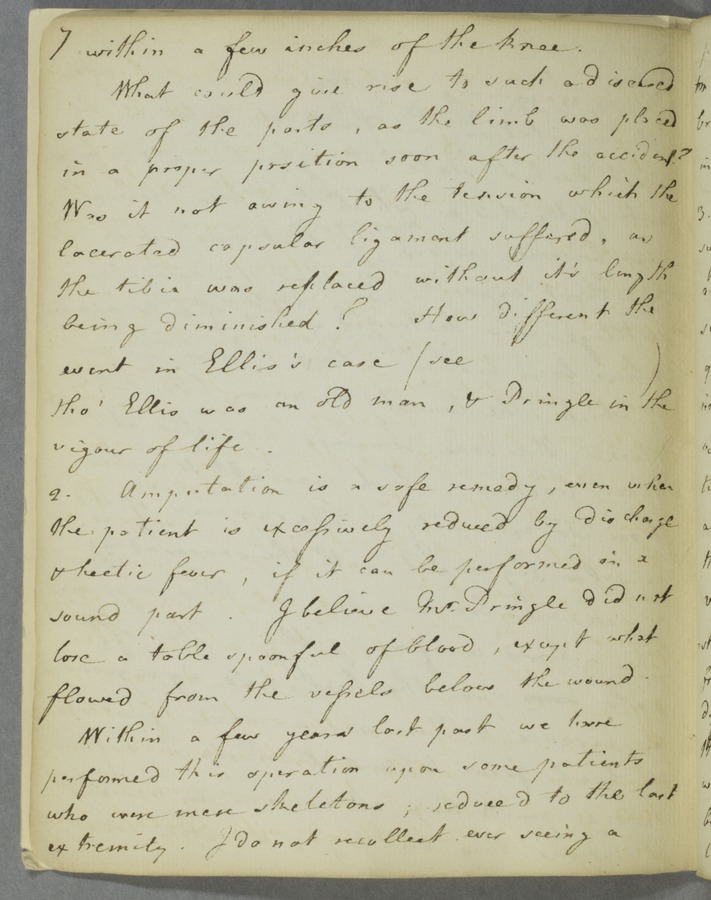 7 within a few inches of the knee.
What could give rise to such a diseased
state of the parts, as the limb was placed
in a proper position soon after the accident?
Was it not owing to the tension which the
lacerated capsular ligament suffered, as
the tibia was replaced without it's length
being diminished? How different the
event in Ellis's case (see )
tho' Ellis was an old man, & Pringle in the
vigour of life.
2. Amputation is a safe remedy, even when
the patient is excessively reduced by discharge
& hectic fever, if it can be performed in a
sound part. I believe Mr. Pringle did not
lose a table spoonful of blood, except what
flowed from the vessels below the wound.
Within a few years last past we have
performed this operation upon some patients
who were mere skeletons; reduced to the last
extremity. I do not recollect ever seeing a